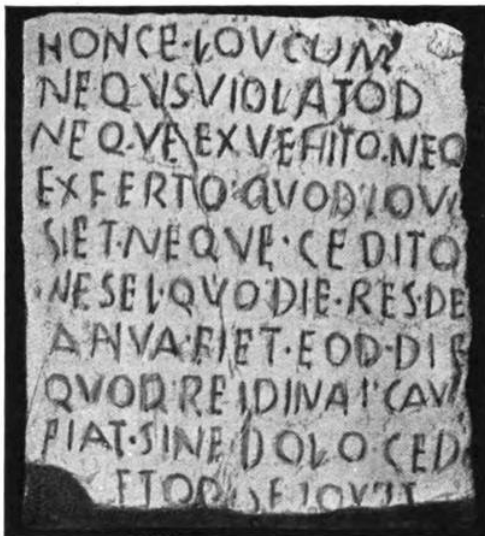 HONCE·LOVCOM
NEQVS VIOLATOD
NEQ·VE EXVEHITO·NEQ
EXFERTO·QVOD·LOVCI
SIET·NEQVE·CEDITO
·NESEI·QVO·DIE·RES·DE
ANVA·FIET·EOD·DIE
QVOD·REI·DINAI·CAV
FIAT·SINE·DOLO·CED
ETOD